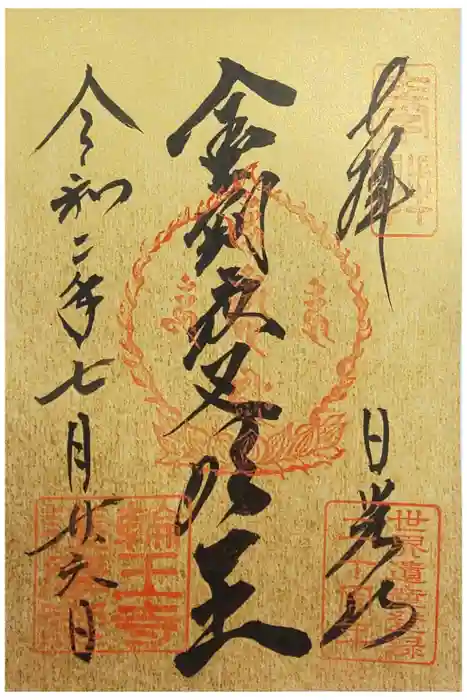 奉拝 日光山
金剛夜叉明王
令和二年七月廿六日
世界遺産登録
二十周年
輪王寺
護摩堂